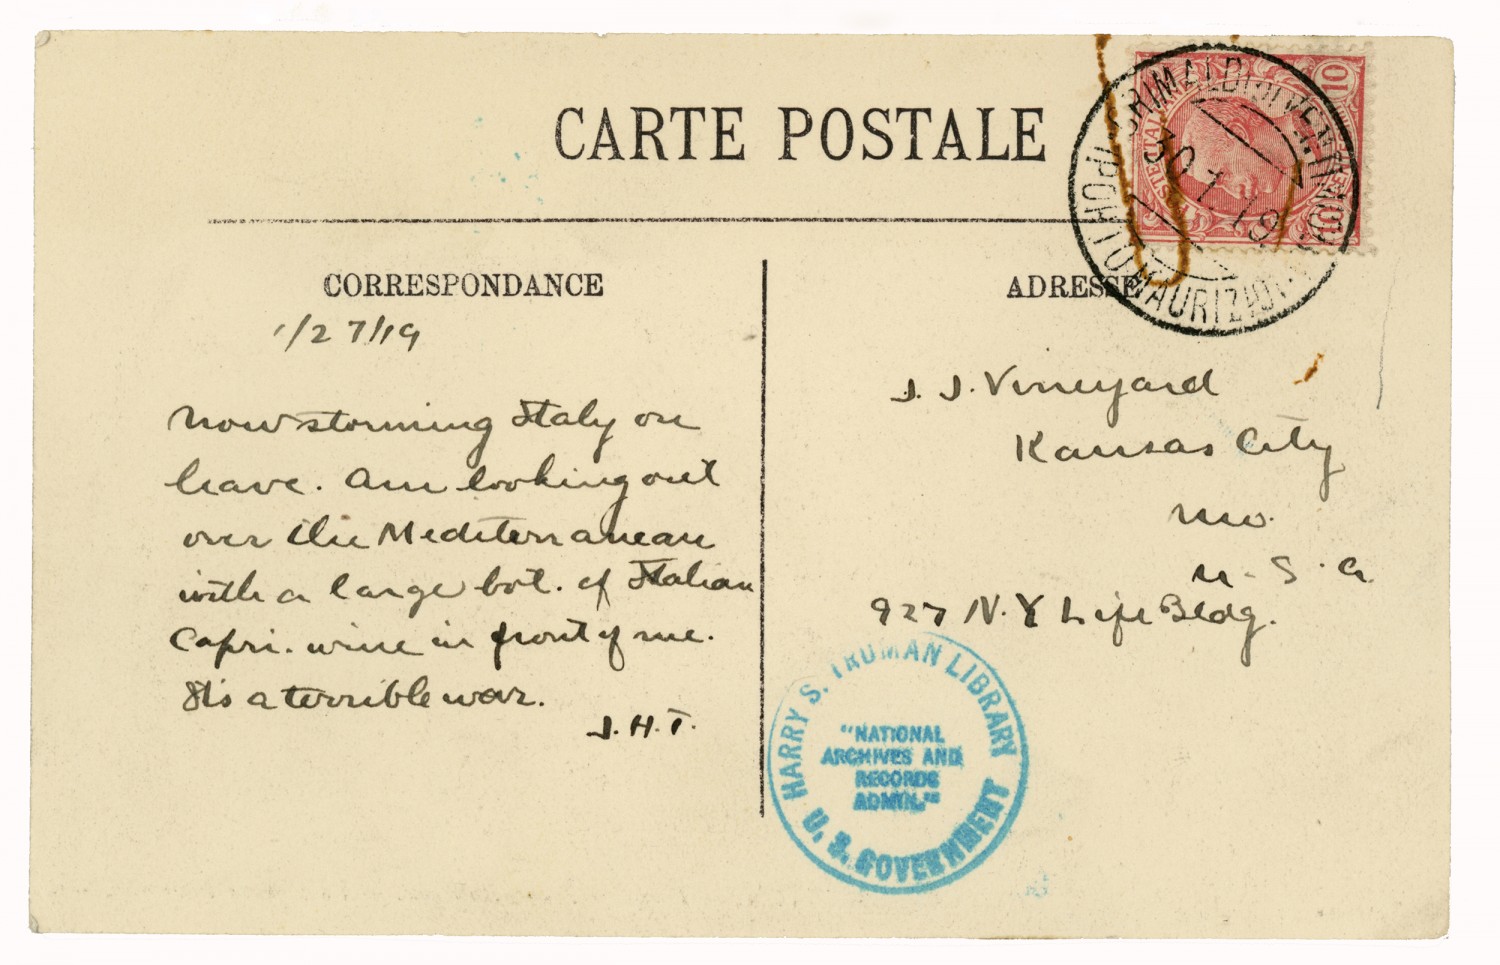 CARTE POSTALE
10
GRIMALDI
30 1 19
PORTO MAURIZIO
CORRESPONDANCE
1/27/19
Now storming Italy on
leave. Am looking out
over the Mediterranean
with a large bot. of Italian
Capri. wine in front of me.
It's a terrible war.
J.H.T.
ADRESSE
J. J. Vineyard
Kansas City
Mo.
U.S.A.
927 N.Y Life Bldg.
HARRY S. TRUMAN LIBRARY
"NATIONAL
ARCHIVES AND
RECORDS
ADMIN."
U.S. GOVERNMENT